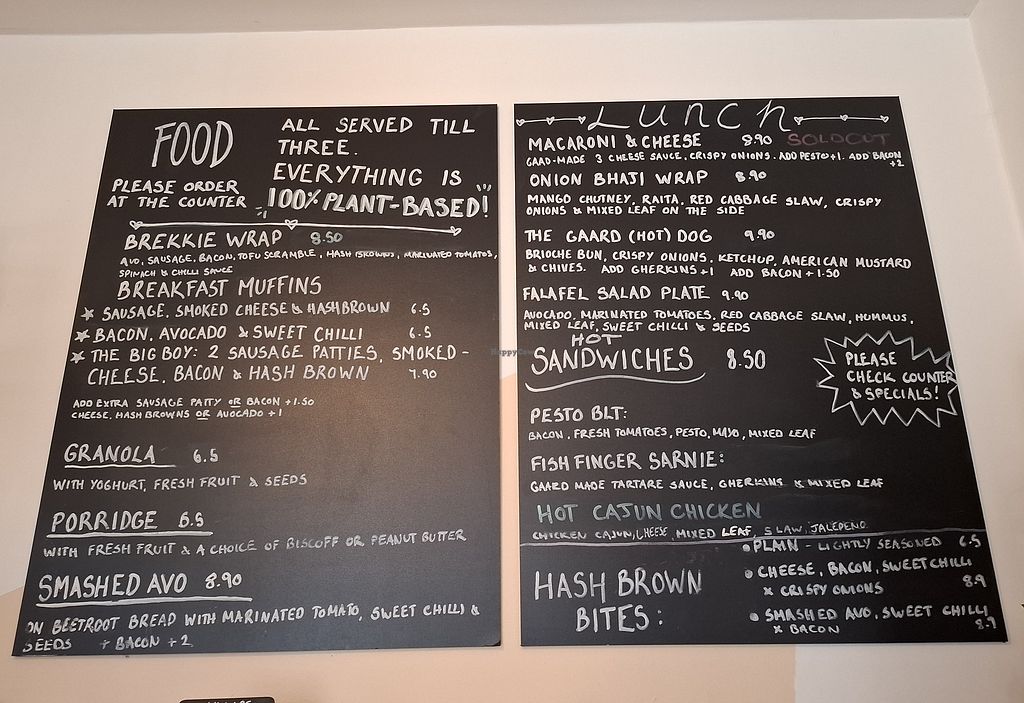 FOOD
PLEASE ORDER
AT THE COUNTER
ALL SERVED TILL
THREE.
EVERYTHING IS
100% PLANT-BASED!
BREKKIE WRAP 8.50
AVO, SAUSAGE, BACON, TOFU SCRAMBLE, HASH BROWNS, MARINATED TOMATOS,
SPINACH & CHILLI SAUCE
BREAKFAST MUFFINS
SAUSAGE, SMOKED CHEESE & HASHBROWN 6.5
BACON, AVOCADO & SWEET CHILLI 6.5
THE BIG BOY: 2 SAUSAGE PATTIES, SMOKED-
CHEESE, BACON & HASH BROWN 7.90
ADD EXTRA SAUSAGE PATTY OR BACON +1.50
CHEESE, HASH BROWNS OR AVOCADO +1
GRANOLA 6.5
WITH YOGHURT, FRESH FRUIT & SEEDS
PORRIDGE 6.5
WITH FRESH FRUIT & A CHOICE OF BISCOFF OR PEANUT BUTTER
SMASHED AVO 8.90
ON BEETROOT BREAD WITH MARINATED TOMATO, SWEET CHILLI &
SEEDS + BACON +2
LUNCH
MACARONI & CHEESE 8.90 SOLD OUT
GAARD-MADE 3 CHEESE SAUCE, CRISPY ONIONS. ADD PESTO +1. ADD BACON
+2
ONION BHAJI WRAP 8.90
MANGO CHUTNEY, RAITA, RED CABBAGE SLAW, CRISPY
ONIONS & MIXED LEAF ON THE SIDE
THE GAARD (HOT) DOG 9.90
BRIOCHE BUN, CRISPY ONIONS, KETCHUP, AMERICAN MUSTARD
& CHIVES. ADD GHERKINS +1 ADD BACON +1.50
FALAFEL SALAD PLATE 9.90
AVOCADO, MARINATED TOMATOES, RED CABBAGE SLAW, HUMMUS,
MIXED LEAF, SWEET CHILLI & SEEDS
HOT
SANDWICHES 8.50
PLEASE
CHECK COUNTER
& SPECIALS!
PESTO BLT:
BACON, FRESH TOMATOES, PESTO, MAYO, MIXED LEAF
FISH FINGER SARNIE:
GAARD MADE TARTARE SAUCE, GHERKINS & MIXED LEAF
HOT CAJUN CHICKEN
CHICKEN CAJUN, CHEESE, MIXED LEAF, SLAW, JALEPENO
HASH BROWN
BITES:
PLAIN - LIGHTLY SEASONED 6.5
CHEESE, BACON, SWEET CHILLI
x CRISPY ONIONS 8.9
SMASHED AVO, SWEET CHILLI
x BACON 8.9
HappyCow